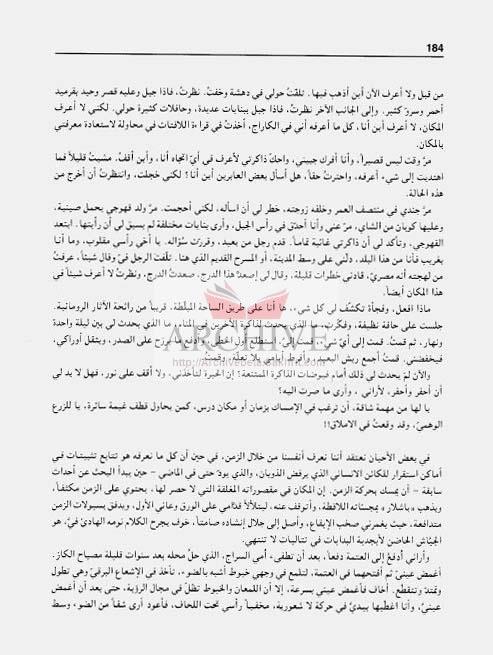 184
من قبل ولا أعرف الآن أين أذهب فيها. تلفتُّ حولي في دهشة وخفتُ. نظرتُ، فاذا جبل وعليه قصر وحيد بقرميد
أحمر وسرو كثير. وإلى الجانب الآخر نظرتُ، فاذا جبل ببنايات عديدة، وحافلات كثيرة حولي. لكني لا أعرف
المكان، لا أعرف أين أنا، كل ما أعرفه أني في الكاراج، أخذتُ في قراءة اللافتات في محاولة لاستعادة معرفتي
بالمكان.
مرّ وقت ليس قصيراً، وأنا أفرك جبيني، واحكّ ذاكرتي لأعرف في أيّ اتجاه أنا، وأين أقفُ. مشيتُ قليلاً فما
اهتديت إلى شيء أعرفه، واحترتُ حقاً، هل أسأل بعض العابرين أين أنا؟ لكني خجلت، وانتظرتُ أن أخرج من
هذه الحالة.
مرّ جندي في منتصف العمر وخلفه زوجته، خطر لي أن اسأله، لكني أحجمت. مرّ ولد قهوجي يحمل صينية،
وعليها كوبان من الشاي، مرّ عني وأنا أحدّق في رأس الجبل، وأرى بنايات مختلفة لم يسبق لي أن رأيتها. ابتعد
القهوجي، وتأكد لي أن ذاكرتي غائبة تماماً. قدم رجل من بعيد، وقررت سؤاله. يا أخي رأسي مقلوب، وما أنا
بغريب فأنا من هذا البلد، دلّني على وسط المدينة، أو المسرح القديم الذي هنا. تلفّت الرجل فيّ وقال شيئاً، عرفتُ
من لهجته أنه مصريّ، قادني خطرات قليلة، وقال لي إصعدْ هذا الدرج، صعدتُ الدرج، ونظرتُ لا أعرف شيئاً في
هذا المكان أيضاً.
ماذا افعل، وفجأة تكشّف لي كل شيء، ها أنا على طريق الساحة المبلّطة. قريباً من رائحة الآثار الرومانية.
جلست على حافة نظيفة، وفكّرت، ما الذي يحدث لذاكرة الآخرين في المنام، ما الذي يحدث لي بين ليلة واحدة
ونهار، ثم قمتُ. قمت إلى أيّ شيء؟ قمت إليّ. أستطلع أول الخطى، وأدفع ما يرزح على الصدر، ويثقل أوراكي،
فيخفضني. قمتُ أجمع ريش البعيد، وأفرط أيامي بلا تعلّة، وقمتُ.
والآن لمَ يحدث لي ذلك أمام فيوضات الذاكرة الممتنعة؟ إن الحيرة لتأخذني، ولا أقف على نور، فهل لا بد لي
أن أحفر وأحفر، لأراني، وأرى ما صرت اليه؟
يا لها من مهمة شاقة، أن ترغب في الإمساك بزمان أو مكان درس، كمن يحاول قطف غيمة سائرة، يا للزرع
الوهميّ، وقد وقعتُ في الاملاق!!
في بعض الأحيان نعتقد أننا نعرف أنفسنا من خلال الزمن، في حين أن كل ما نعرفه هو تتابع تثبيتات في
أماكن استقرار للكائن الانساني الذي يرفض الذوبان، والذي يودّ حتى في الماضي - حين يبدأ البحث عن أحداث
سابقة - أن يمسك بحركة الزمن. إن المكان في مقصوراته المغلقة التي لا حصر لها، يحتوي على الزمن مكثفاً،
ويذهب «باشلار» بمجسّاته اللاقطة، وأتوقف عنه، ليتلألأ قدّامي على الورق وعاني الأول، ويدفق بسيولات الزمن
متدافعة، حيث يغمرني صخب الإيقاع، وأصل إلى جلال إنشاده صامتاً، خوف يجرح الكلام نومه الهادئ فيّ، هو
الجيّاش الحاضن لأبجدية البدايات في تتاليات لا تنتهي.
وأراني أُدفعُ إلى العتمة دفعاً، بعد أن تطفىء أمي السراج، الذي حلّ محله بعد سنوات قليلة مصباح الكاز.
أغمض عينيّ ثم أفتحهما في العتمة، لتلمع في وجهي خيوط أشبه بالضوء، تأخذ في الإشعاع البرقيّ وهي تطول
وتمتدّ وتتقطع. أخاف فأغمض عيني بسرعة، إلا أن اللمعان والخيوط تظلّ في مجال الرؤية، حتى بعد أن أغمض
عينيّ، وأنا اغطّيها بيديّ في حركة لا شعورية، مخفياً رأسي تحت اللحاف، فأعود أرى شقّاً من الضوء وسط
ARCHIVE
http://Archivebeta.Sakhrit.com